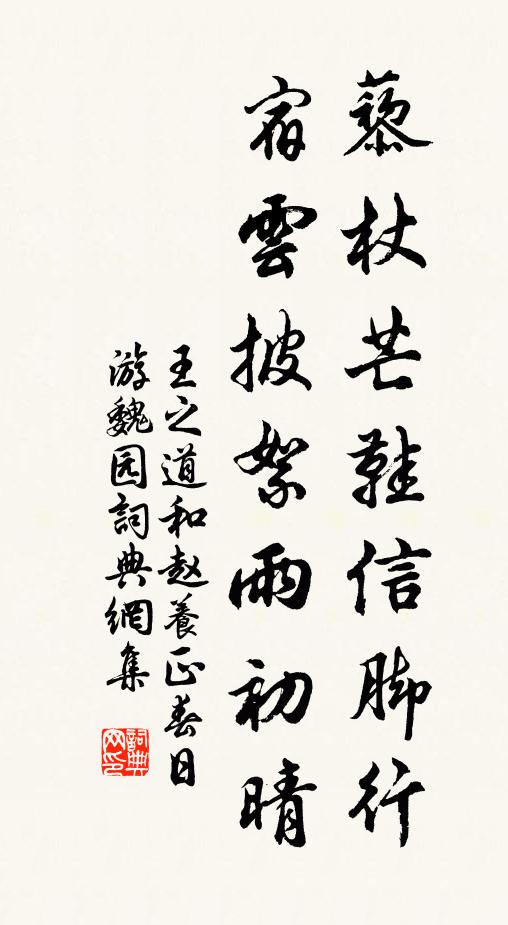 藜杖芒鞋信脚行
宿雲披絮雨初晴
王之道和赵養正春日
游魏园詞典網集
詞典
网印